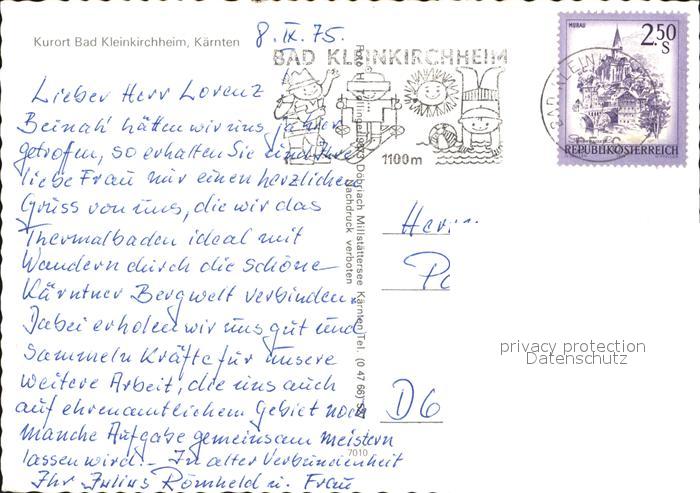 Kurort Bad Kleinkirchheim, Kärnten
8. IX. 75.
BAD KLEINKIRCHHEIM
1100 m
2.50 S
MURAU
REPUBLIK ÖSTERREICH
Lieber Herr Lorenz
Beinah' hätten wir uns ja hier
getroffen, so erhalten Sie und Ihre
liebe Frau nur einen herzlichen
Gruss von uns, die wir das
Thermalbaden ideal mit
Wandern durch die schöne
Kärntner Bergwelt verbinden.
Dabei erholen wir uns gut und
sammeln Kräfte für unsere
weitere Arbeit, die uns auch
auf ehrenamtlichem Gebiet noch
manche Aufgabe gemeinsam meistern
lassen wird. – In alter Verbundenheit
Ihr Julius Römheld u. Frau
Döbriach Millstättersee Kärnten Tel. (0 47 66)
Nachdruck verboten
7010
Herrn
D6
privacy protection
Datenschutz